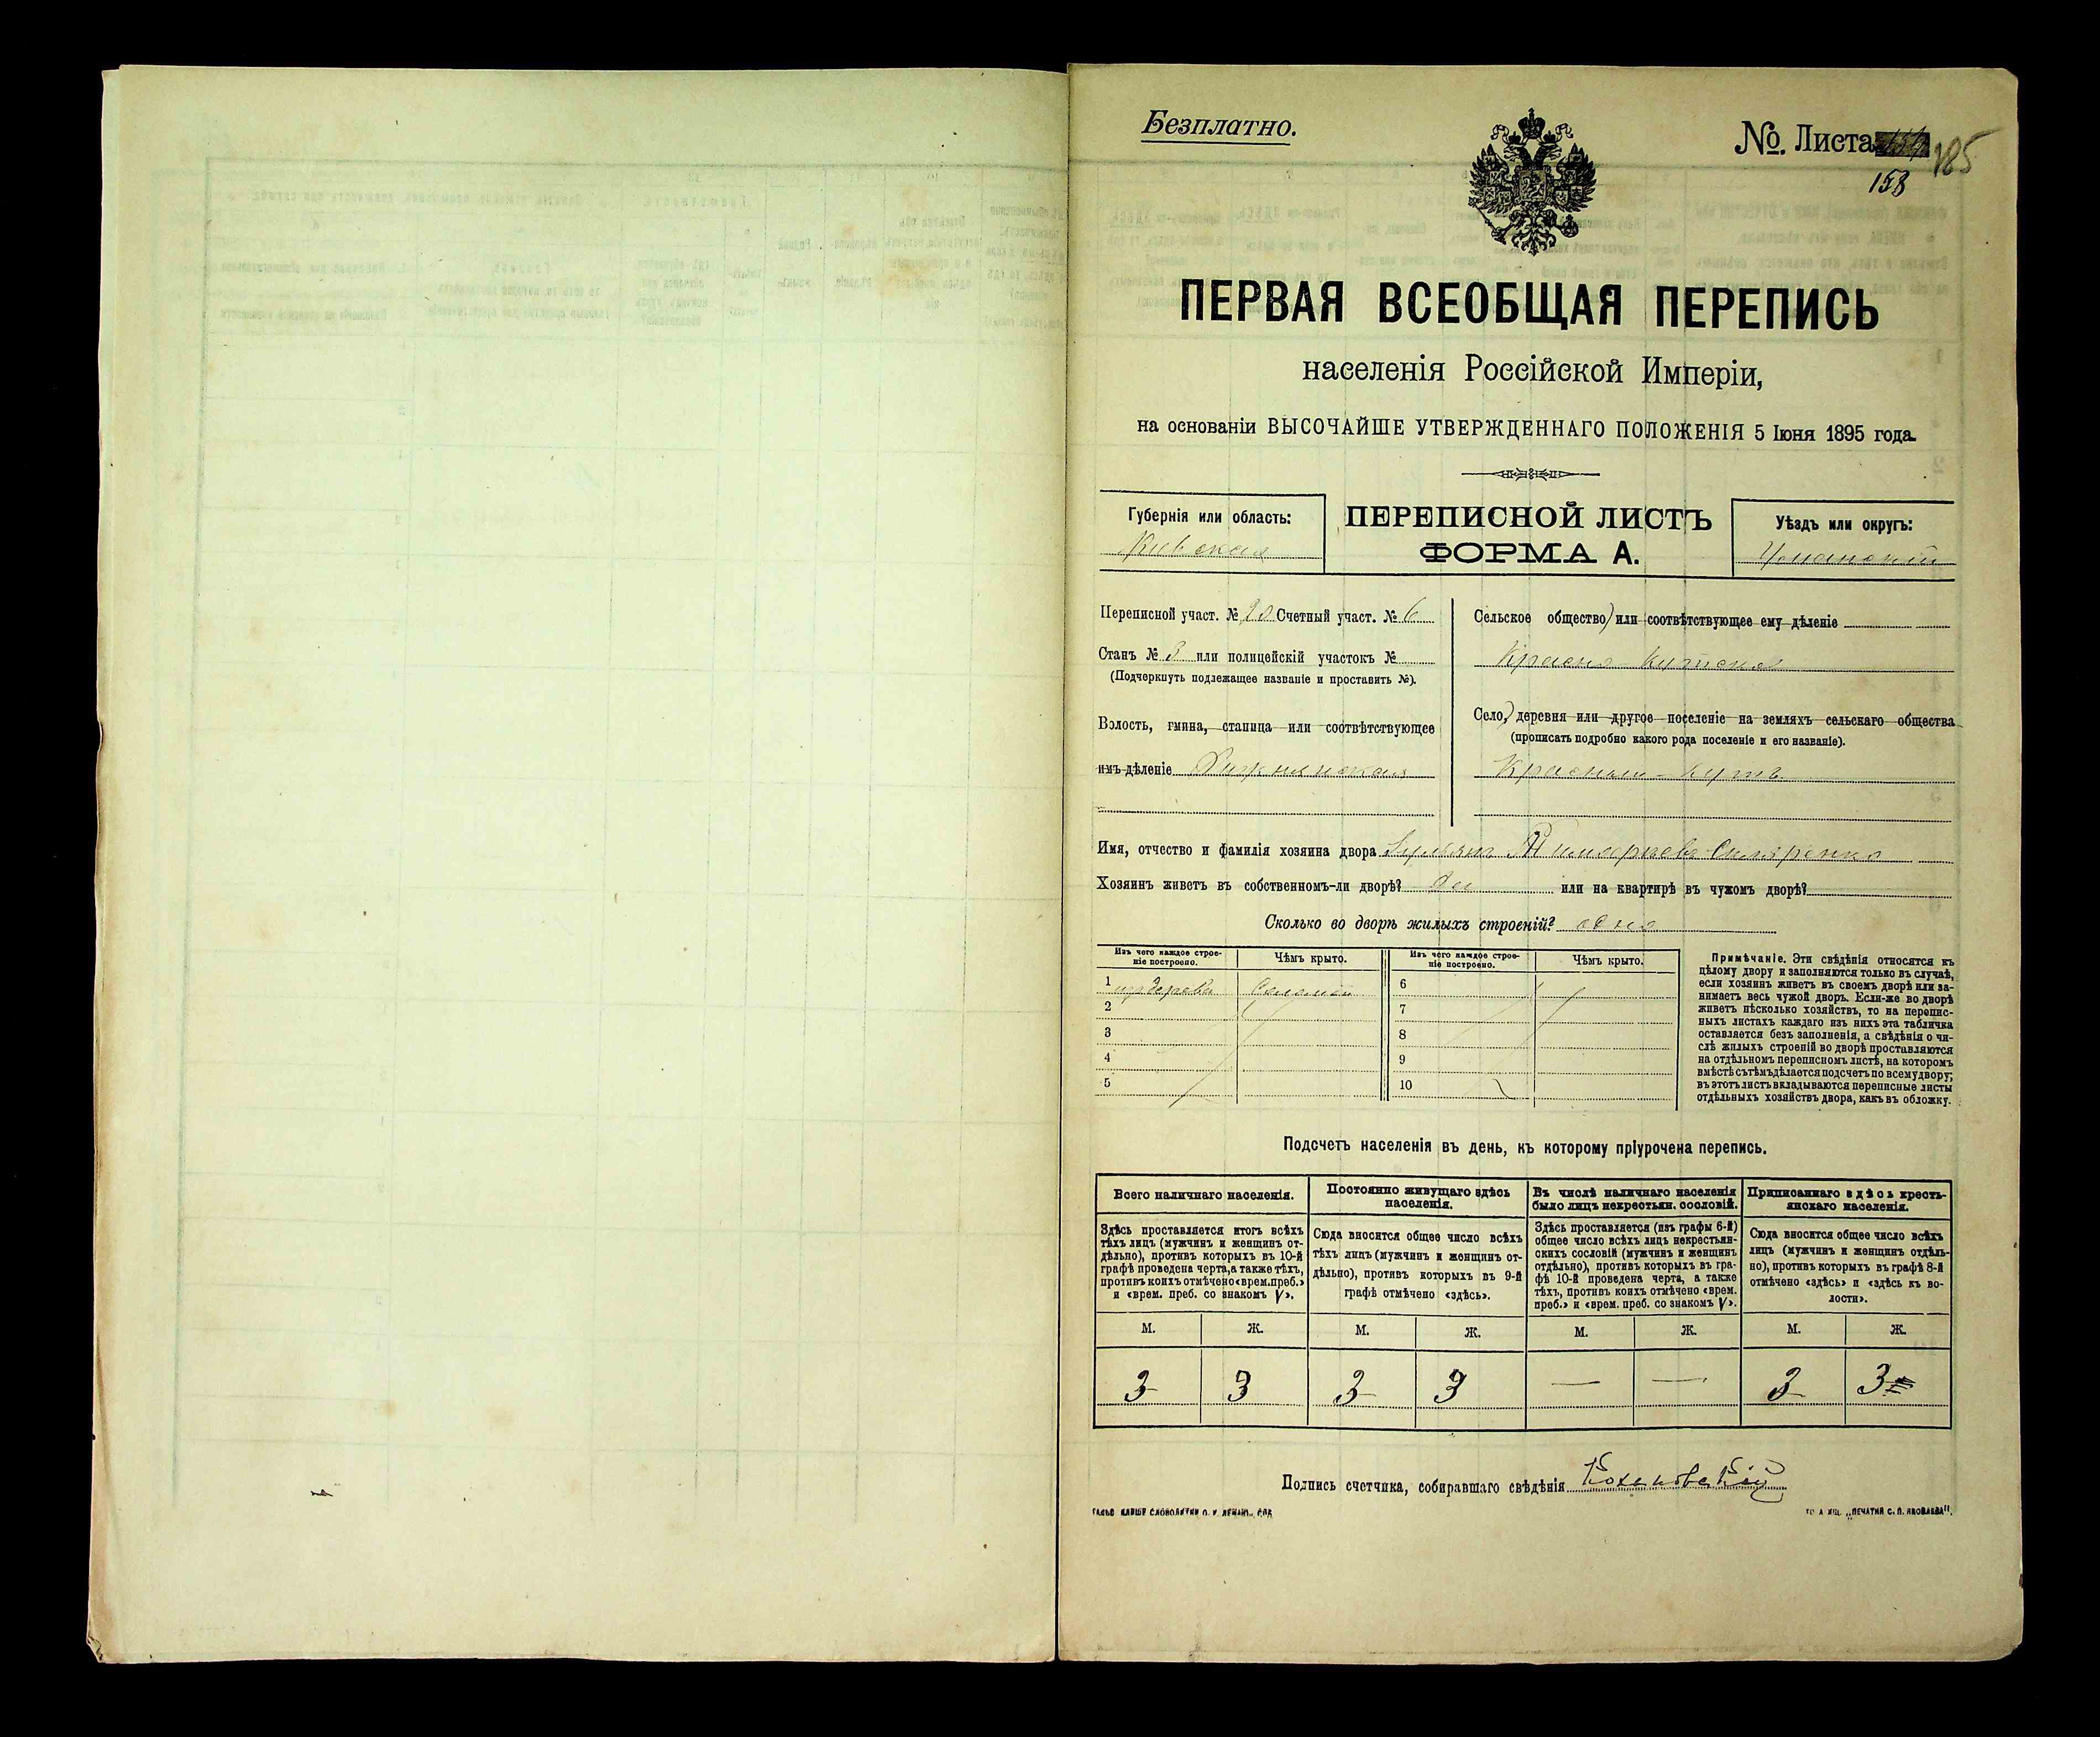 Безплатно.
№. Листа
185
158
ПЕРВАЯ ВСЕОБЩАЯ ПЕРЕПИСЬ
населенія Россійской Имперіи,
на основаніи ВЫСОЧАЙШЕ УТВЕРЖДЕННАГО ПОЛОЖЕНІЯ 5 Іюня 1895 года
Губернія или область:
Кіевская
ПЕРЕПИСНОЙ ЛИСТЪ
ФОРМА А.
Уѣздъ или округъ:
Уманскій
Переписной участ. № 20 Счетный участ. № 6
Станъ № 3 или полицейскій участокъ №
(Подчеркнуть подлежащее названіе и проставить №).
Волость, гмина, станица или соотвѣтствующее
имъ дѣленіе
Сельское общество или соотвѣтствующее ему дѣленіе
Красно-Кутское
Село, деревня или другое поселеніе на земляхъ сельскаго общества
(прописать подробно какого рода поселеніе и его названіе).
Красный-Кутъ
Имя, отчество и фамилія хозяина двора
Хозяинъ живетъ въ собственномъ-ли дворѣ? да или на квартирѣ въ чужомъ дворѣ?
Сколько во дворѣ жилыхъ строеній? одно
Изъ чего каждое строе-
ніе построено.
Чѣмъ крыто.
Изъ чего каждое строе-
ніе построено.
Чѣмъ крыто.
1 изъ дерева Соломой
2
3
4
5
6
7
8
9
10
Примѣчаніе. Эти свѣдѣнія относятся къ
цѣлому двору и заполняются только въ случаѣ,
если хозяинъ живетъ въ своемъ дворѣ или за-
нимаетъ весь чужой дворъ. Если-же во дворѣ
живетъ нѣсколько хозяйствъ, то на перепис-
ныхъ листахъ каждаго изъ нихъ эта табличка
оставляется безъ заполненія, а свѣдѣнія о чи-
слѣ жилыхъ строеній во дворѣ проставляются
на отдѣльномъ переписномъ листѣ, на которомъ
вмѣстѣ съ тѣмъ дѣлается подсчетъ по всему двору;
въ этотъ листъ вкладываются переписные листы
отдѣльныхъ хозяйствъ двора, какъ въ обложку.
Подсчетъ населенія въ день, къ которому пріурочена перепись.
Всего наличнаго населенія.
Здѣсь проставляется итогъ всѣхъ
тѣхъ лицъ (мужчинъ и женщинъ от-
дѣльно), противъ которыхъ въ 10-й
графѣ проведена черта, а также тѣхъ,
противъ коихъ отмѣчено «врем. преб.»
и «врем. преб. со знакомъ V».
Постоянно живущаго здѣсь
населенія.
Сюда вносится общее число всѣхъ
тѣхъ лицъ (мужчинъ и женщинъ от-
дѣльно), противъ которыхъ въ 9-й
графѣ отмѣчено «здѣсь».
Въ числѣ наличнаго населенія
было лицъ некрестьян. сословій.
Здѣсь проставляется (изъ графы 6-й)
общее число всѣхъ лицъ некрестьян-
скихъ сословій (мужчинъ и женщинъ
отдѣльно), противъ которыхъ въ гра-
фѣ 10-й проведена черта, а также
тѣхъ, противъ коихъ отмѣчено «врем.
преб.» и «врем. преб. со знакомъ V».
Приписаннаго здѣсь кресть-
янскаго населенія.
Сюда вносится общее число всѣхъ
лицъ (мужчинъ и женщинъ отдѣль-
но), противъ которыхъ въ графѣ 8-й
отмѣчено «здѣсь» и «здѣсь къ во-
лости».
М. Ж. М. Ж. М. Ж. М. Ж.
3 3 3 3 — — 3 3
Подпись счетчика, собиравшаго свѣдѣнія